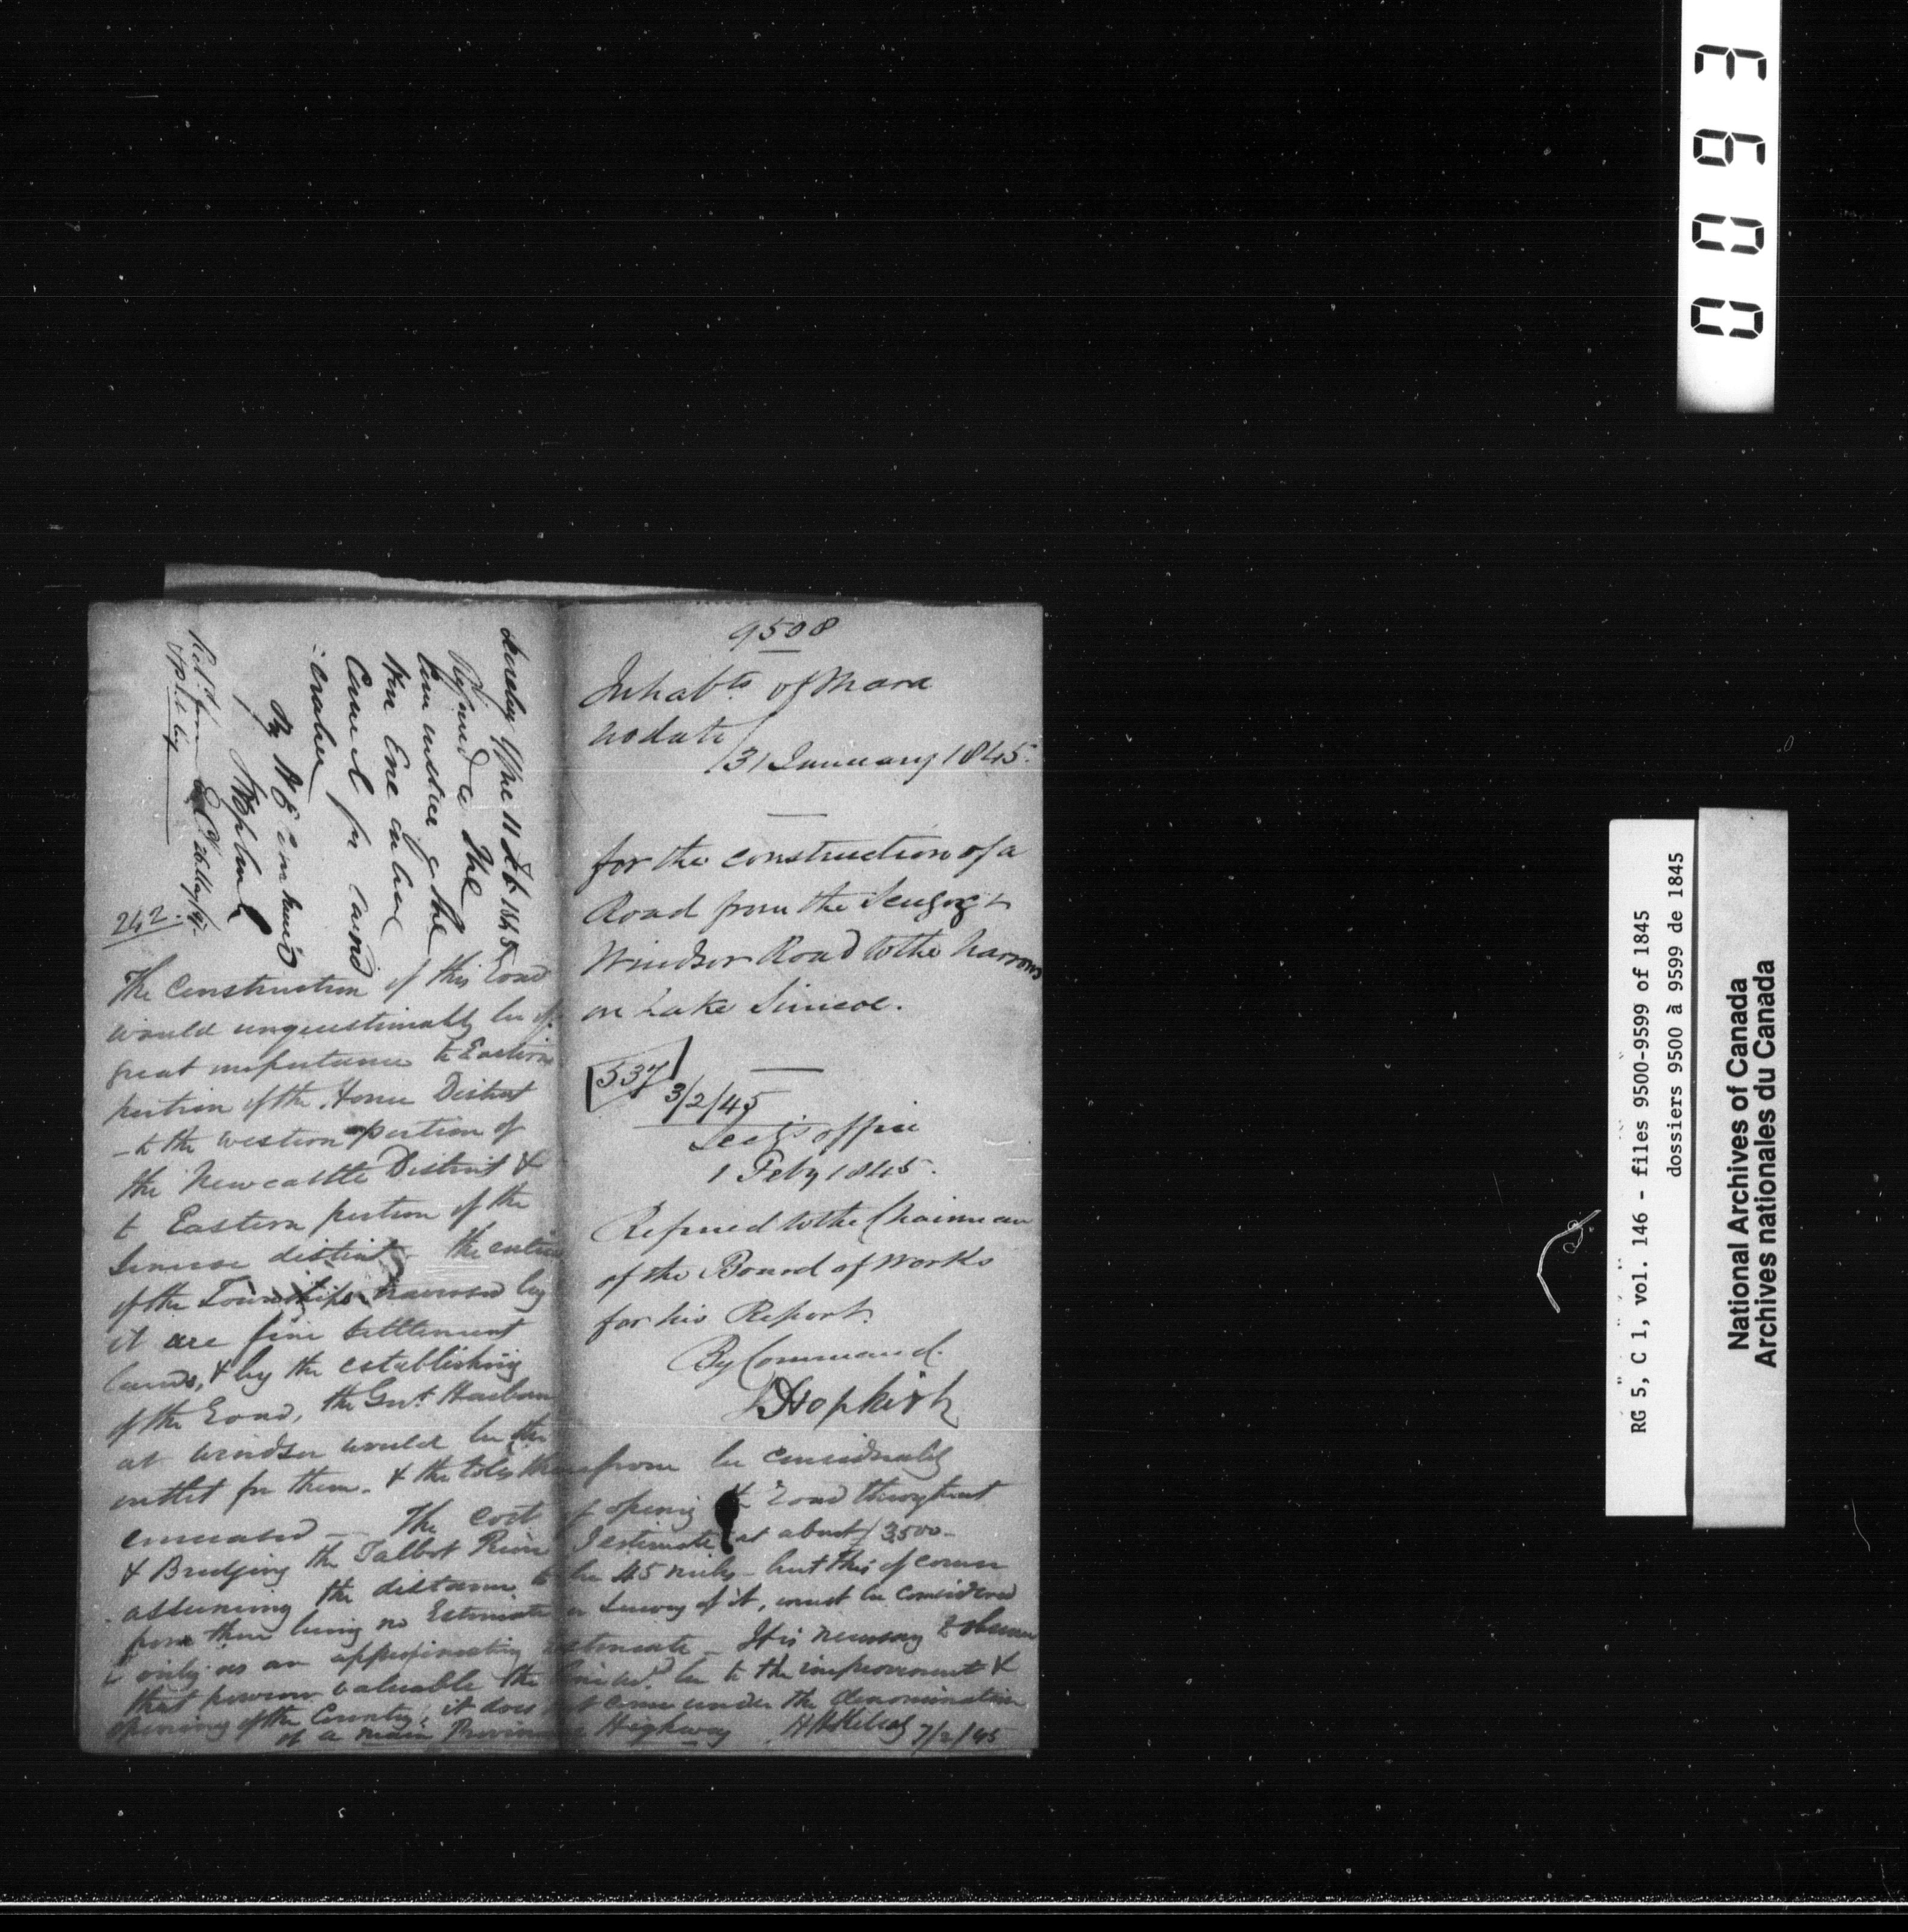 9508
Inhabts of Mara
no date
31 January 1845.
for the construction of a
Road from the Scugog &
Windsor Road to the Narrows
on Lake Simcoe.
537
3/2/45
Secy's office
1 Feby 1845.
Referred to the Chairman
of the Board of Works
for his Report.
By Command.
Hopkirk
Office 11 Feb 1845
Referred to the
the
Council for
Hopkirk
242.
The Construction of this Road
would unquestionably be of
great importance to Eastern
portion of the Home District
- to the western portion of
the Newcastle District &
to Eastern portion of the
Simcoe district - the entire
of the Townships traversed by
it are fine settlement
lands, & by the establishing
of the Road, the Govt Harbour
at Windsor would be the
outlet for them. & the tolls therefrom be considerably
encreased - The cost of opening the Road throughout
& Bridging the Talbot River I estimate at about £3500 -
assuming the distance to be 45 miles - but this of course
from there being no Estimate or Survey of it, must be considered
only as an approximating estimate - It is necessary to observe
that however valuable the line wd. be to the improvement &
opening of the Country, it does not come under the denomination
of a main Provincial Highway HHKillaly 7/2/45
0093
RG 5, C 1, vol. 146 - files 9500-9599 of 1845
dossiers 9500 à 9599 de 1845
National Archives of Canada
Archives nationales du Canada